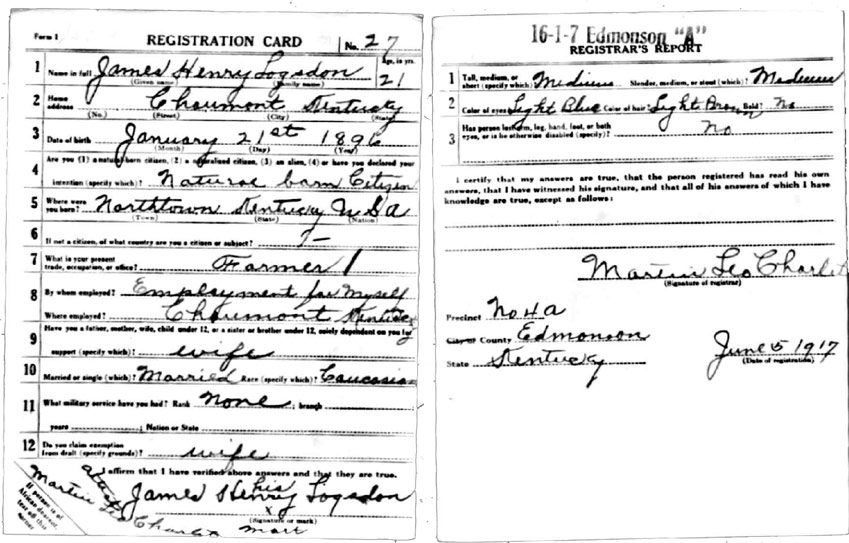 Form 1
REGISTRATION CARD No. 27
1 Name in full James Henry Logsdon Age, in yrs. 21
(Given name) (Family name)
2 Home address Chaumont Kentucky
(No.) (Street) (City) (State)
3 Date of birth January 21st 1896
(Month) (Day) (Year)
4 Are you (1) a natural-born citizen, (2) a naturalized citizen, (3) an alien, (4) or have you declared your
intention (specify which)? Natural barn Citizen
5 Where were you born? Northtown Kentucky U S A
(Town) (State) (Nation)
6 If not a citizen, of what country are you a citizen or subject?
7 What is your present trade, occupation, or office? Farmer 1
8 By whom employed? Employment for Myself
Where employed? Chaumont Kentucky
9 Have you a father, mother, wife, child under 12, or a sister or brother under 12, solely dependent on you for
support (specify which)? wife
10 Married or single (which)? Married Race (specify which)? Caucasian
11 What military service have you had? Rank None ; branch
years ; Nation or State
12 Do you claim exemption from draft (specify grounds)? wife
I affirm that I have verified above answers and that they are true.
James Henry his Logsdon
x
(Signature or mark)
mark
attest
Martin Leo Charlet
If person is of
African descent,
tear off this
corner
16-1-7 Edmonson "A"
REGISTRAR'S REPORT
1 Tall, medium, or short (specify which)? Medium Slender, medium, or stout (which)? Medium
2 Color of eyes? Light Blue Color of hair? Light Brown Bald? No
3 Has person lost arm, leg, hand, foot, or both
eyes, or is he otherwise disabled (specify)? No
I certify that my answers are true, that the person registered has read his own
answers, that I have witnessed his signature, and that all of his answers of which I have
knowledge are true, except as follows:
Martin Leo Charlet
(Signature of registrar)
Precinct No 4 a
City or County Edmonson
State Kentucky
June 5 1917
(Date of registration)